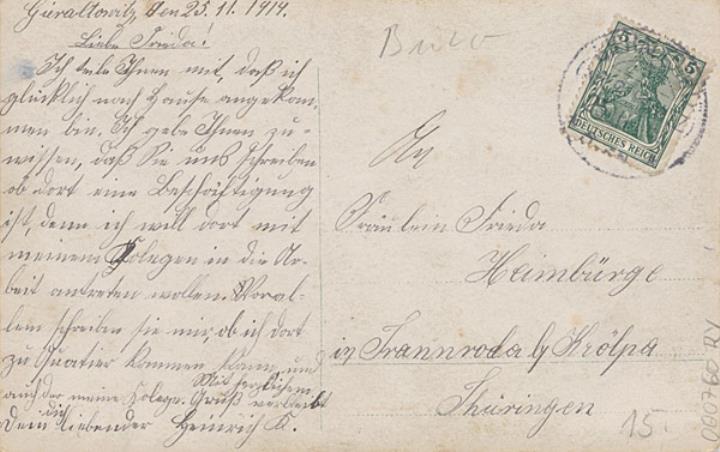 Gieraltowitz, den 25.11.1914.
Liebe Frieda!
Ich teile Ihnen mit, daß ich
glücklich nach Hause angekom-
men bin. Ich gebe Ihnen zu-
wissen, daß Sie uns schreiben
ob dort eine Beschäftigung
ist, denn ich will dort mit
meinem Kolegen in die Ar-
beit antreten wollen. Voral-
lem schreiben sie mir, ob ich dort
zu Quatier kommen kann, und
auch der meine Kolege. Mit herzlichem
Gruß verbleibt
Dein dich liebender Heinrich K.
An
Fräulein Frieda
Heimbürge
in Trannroda b/ Krölpa
Thüringen
5 5
DEUTSCHES REICH
15.-
000760 RY